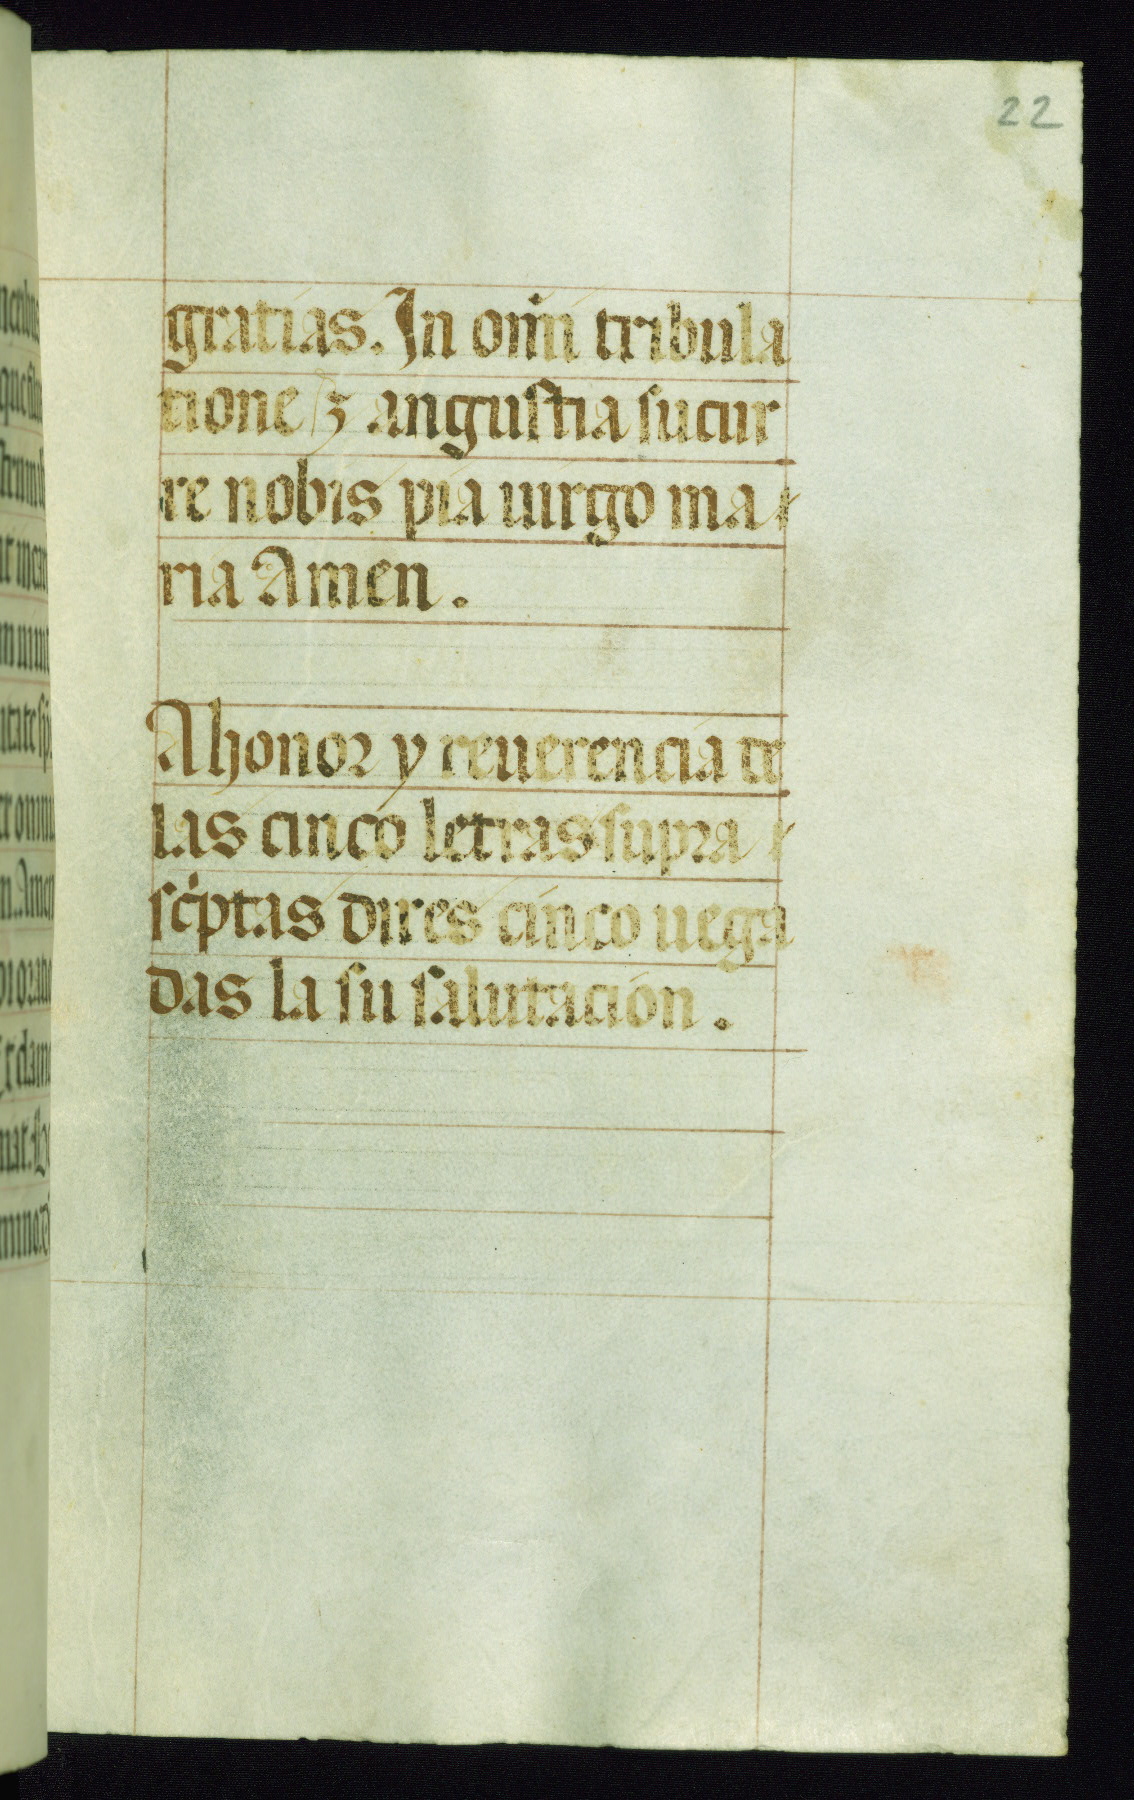 22
gratias. In om̄i tribula
tione ⁊ angustia sucur
re nobis pia uirgo ma
ria Amen.
A honor y reuerencia de
las cinco letras supra
sc̓ptas dires cinco uega
das la su salutacion.